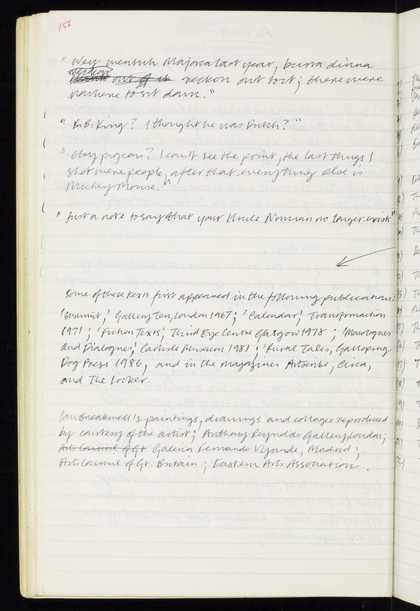 156
" They wentuh Majorca last year, burra dinna
reckon out of it reckon out to it; there were
nowhere to sit down."
" B.B. King? I thought he was Dutch? "
" Clay pigeon? I can't see the point, the last things I
shot were people, after that everything else is
Mickey Mouse. "
" Just a note to say that your Uncle Norman no longer exists "
Some of these texts first appeared in the following publications:
Gallery Ten, London 1967; 'Calendar', Transformaction
1971; 'Fiction Texts', Third Eye Centre Glasgow 1978; 'Monologues
and Dialogues', Carlisle Museum 1981; 'Rural Tales', Galloping
Dog Press 1980, and in the magazines Artscribe, Circa,
and The Locker.
Ian Breakwell's paintings, drawings and collages reproduced
by courtesy of the artist; Anthony Reynolds Gallery, London;
Arts Council of Gt Galeria Fernando Vijande, Madrid;
Arts Council of Gt. Britain; Eastern Arts Association.